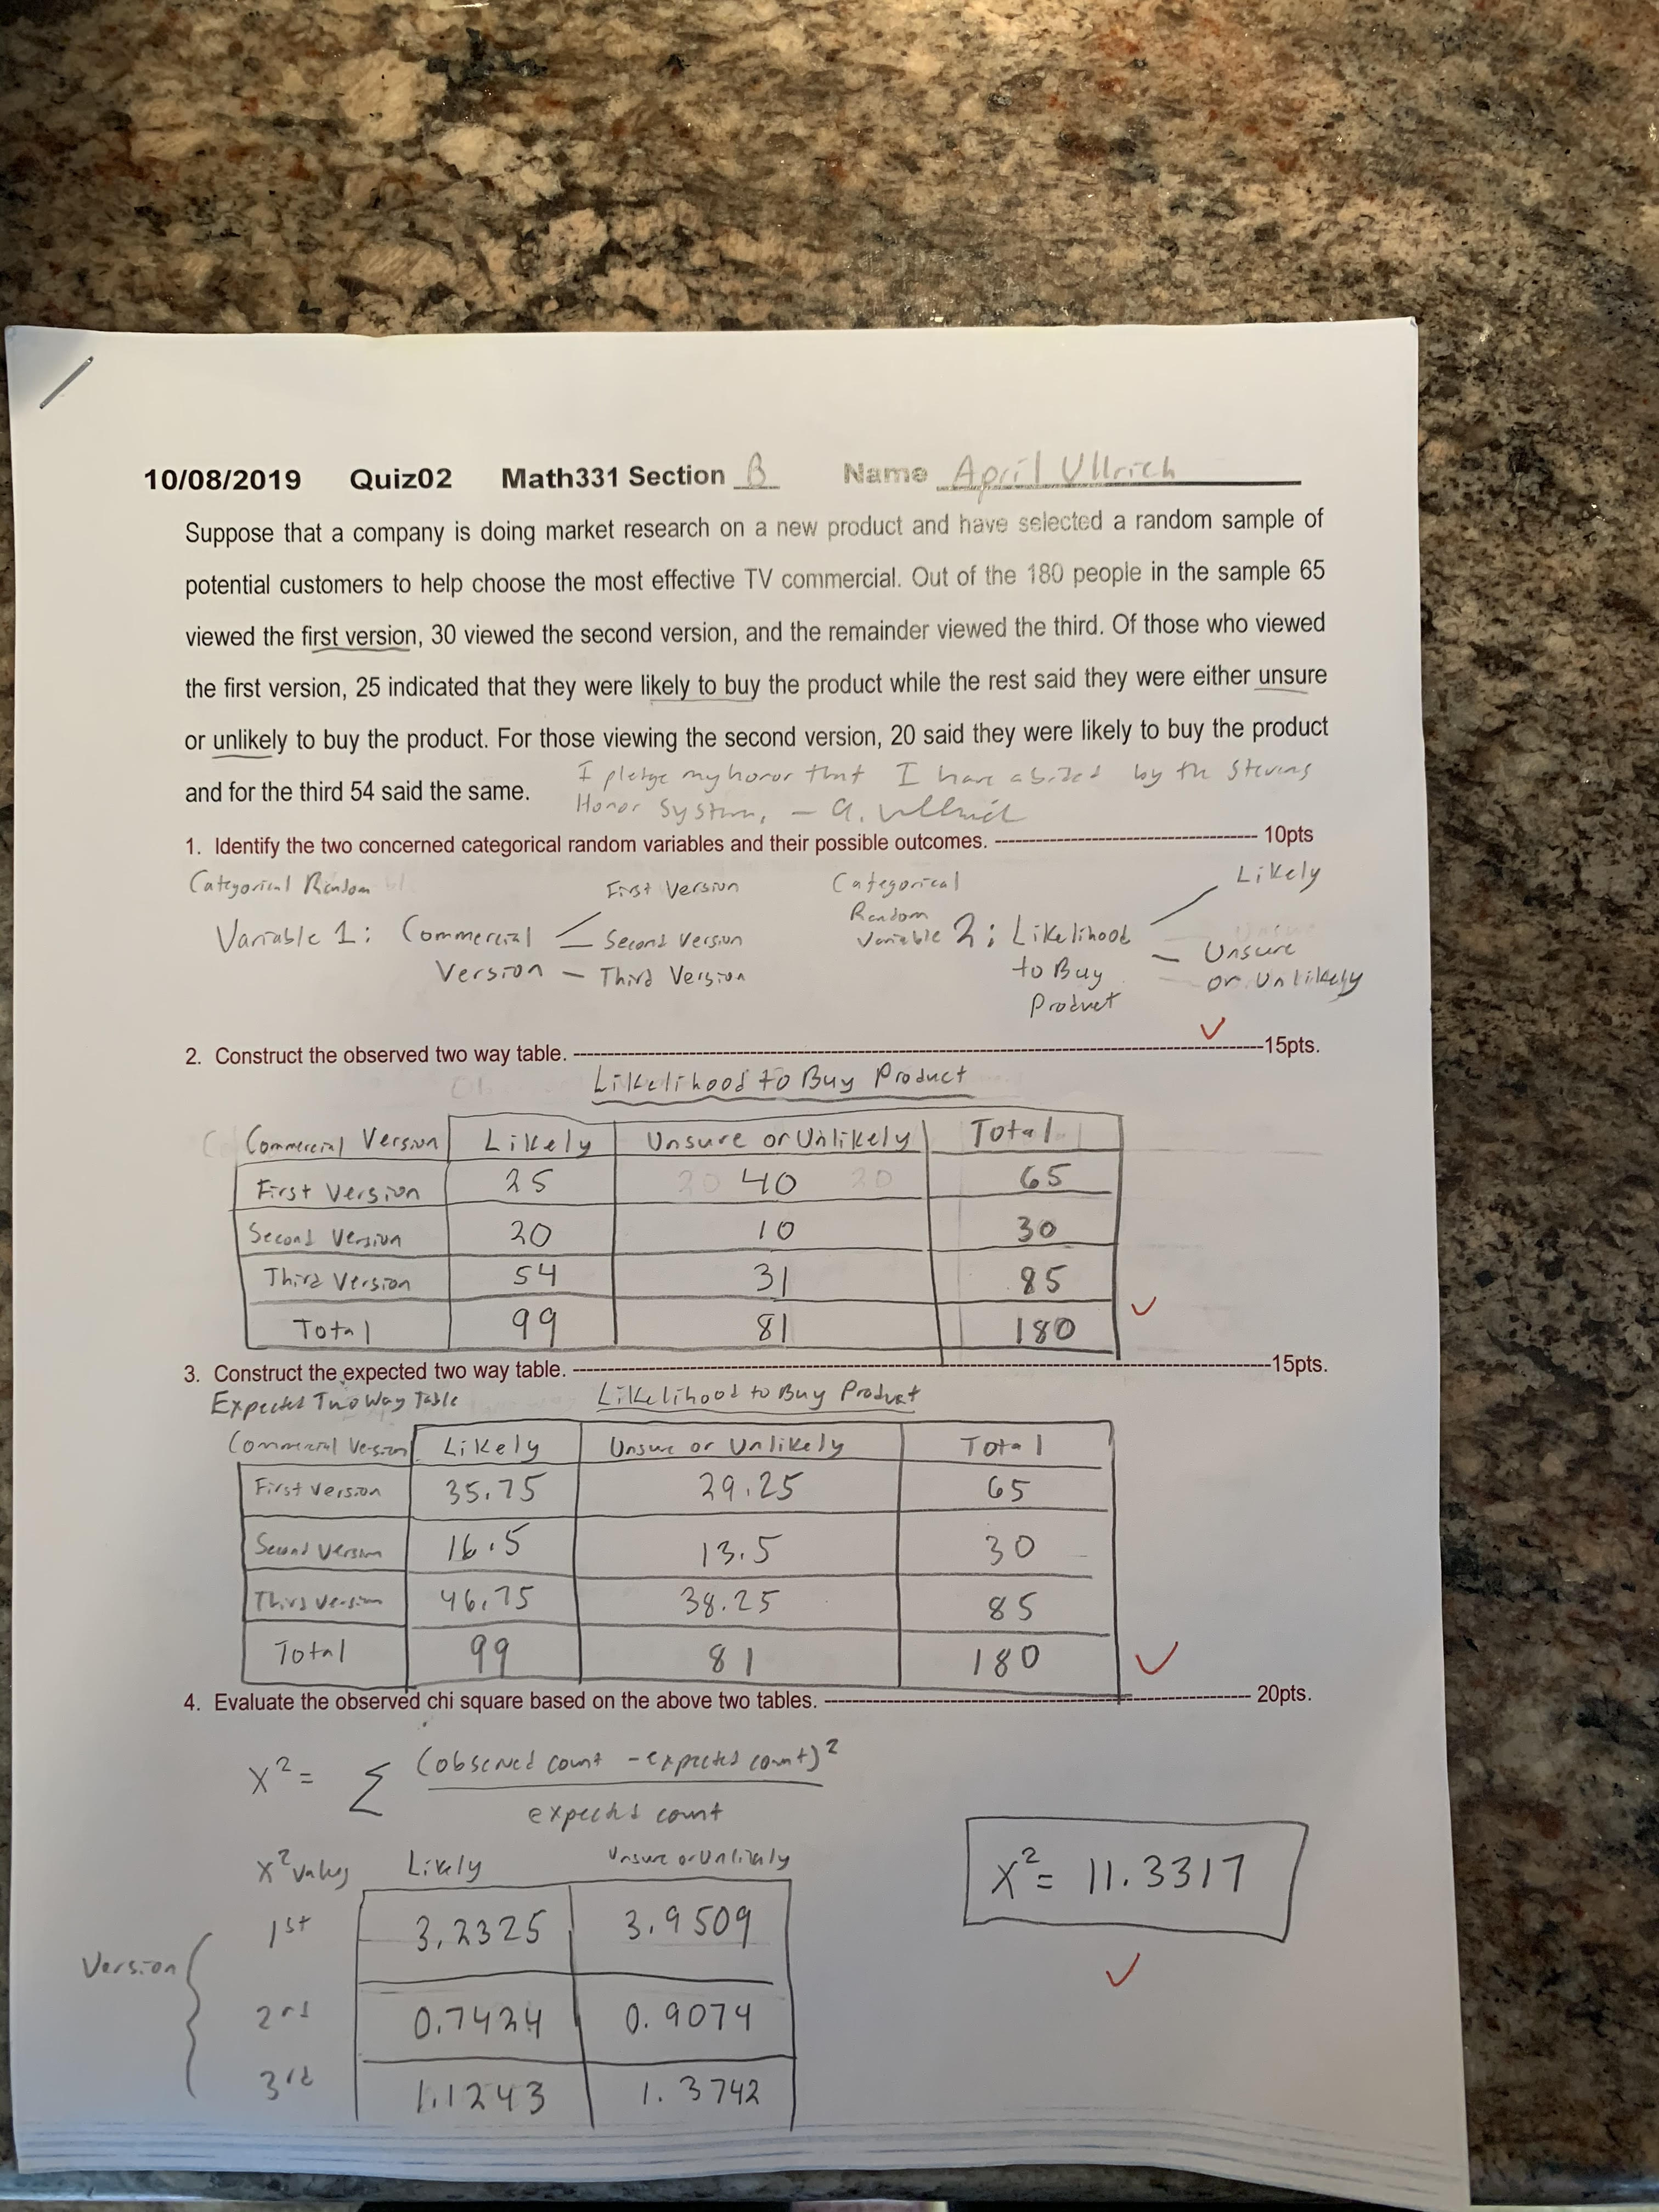 10/08/2019 Quiz02 Math331 Section B Name April Ullrich
Suppose that a company is doing market research on a new product and have selected a random sample of
potential customers to help choose the most effective TV commercial. Out of the 180 people in the sample 65
viewed the first version, 30 viewed the second version, and the remainder viewed the third. Of those who viewed
the first version, 25 indicated that they were likely to buy the product while the rest said they were either unsure
or unlikely to buy the product. For those viewing the second version, 20 said they were likely to buy the product
and for the third 54 said the same.
I pledge my honor that I have abided by the Stevens
Honor System. - A. Ullrich
1. Identify the two concerned categorical random variables and their possible outcomes. 10pts
Categorical Random
Variable 1: Commercial
Version
First Version
Second Version
Third Version
Categorical
Random
Variable 2: Likelihood
to Buy
Product
Likely
Unsure
or Unlikely
2. Construct the observed two way table. 15pts.
Likelihood to Buy Product
Commercial Version Likely Unsure or Unlikely Total
First Version 25 40 65
Second Version 20 10 30
Third Version 54 31 85
Total 99 81 180
3. Construct the expected two way table. 15pts.
Expected Two Way Table Likelihood to Buy Product
Commercial Version Likely Unsure or Unlikely Total
First Version 35.75 29.25 65
Second Version 16.5 13.5 30
Third Version 46.75 38.25 85
Total 99 81 180
4. Evaluate the observed chi square based on the above two tables. 20pts.
X² = Σ (observed count - expected count)²
expected count
X² values Likely Unsure or Unlikely
1st 3.2325 3.9509
X² = 11.3317
Version
2nd 0.7424 0.9074
3rd 1.1243 1.3742